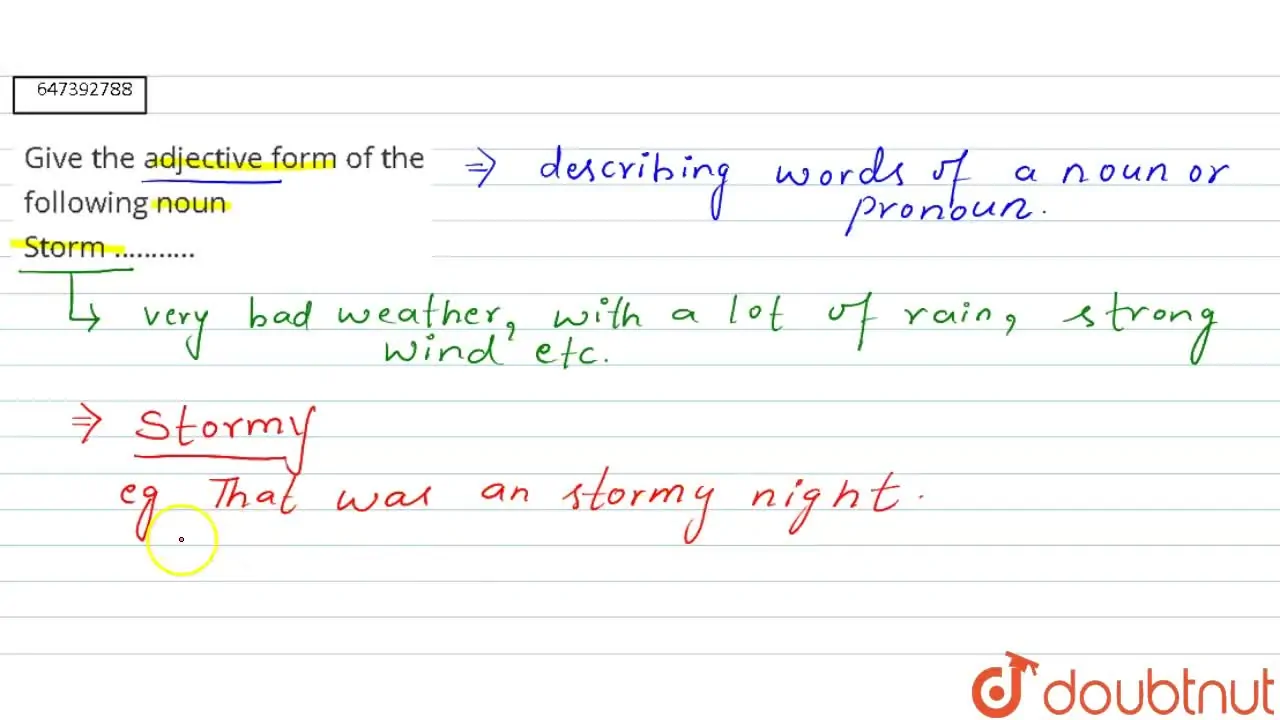 647392788
Give the adjective form of the
following noun
Storm ...........
⇒ describing words of a noun or
pronoun.
↳ very bad weather, with a lot of rain, strong
wind etc.
⇒ Stormy
eg That was an stormy night.
doubtnut